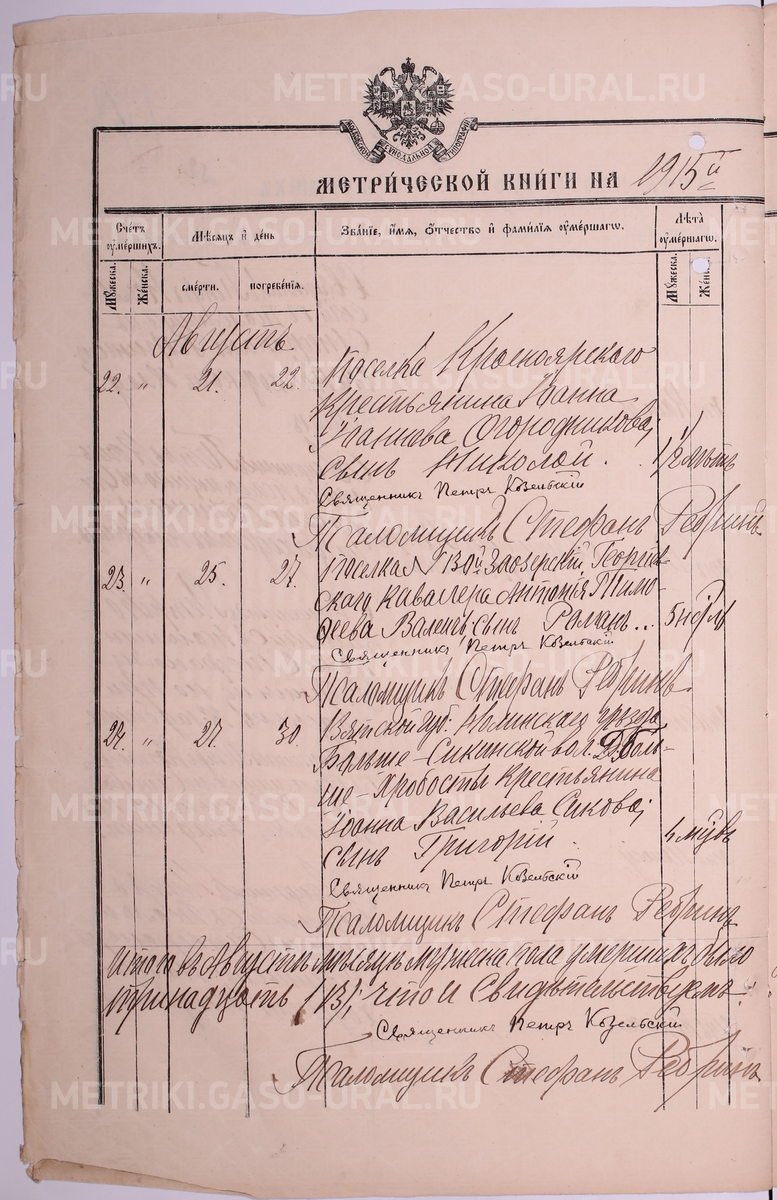 METRIKI.GASO-URAL.RU
СУНОДАЛЬНОЙ ТИПОГРАФІИ
МЕТРИ́ЧЕСКОЙ КНИ́ГИ НА 1915й
Сче́тъ ᲂу҆ме́ршихъ.
Мѣ́сяцъ и҆ де́нь
Зва́нїе, и҆́мѧ, ѻ҆́тчество и҆ фами́лїѧ ᲂу҆ме́ршагѡ.
Лѣ́та ᲂу҆ме́ршагѡ.
Мꙋ́жеска.
Же́нска.
сме́рти.
погребе́нїѧ.
Мꙋ́жеска.
Же́нска.
Августъ
22. " 21. 22. Поселка Красноярскаго
крестьянина Іоанна
Іоаннова Огородникова,
сынъ Николай. 1/2 лѣтъ
Священникъ Петръ Козельскій
Псаломщикъ Стефанъ Ребринъ
23. " 25. 27. Поселка № 130й Заозерскій Георгіев-
скаго Кавалера Антонія Тимо-
ѳеева сынъ Романъ... 5 нед.
Священникъ Петръ Козельскій
Псаломщикъ Стефанъ Ребринъ
24. " 27. 30. Вятской губ. Нолинскаго уѣзда
Больше-Ситкинской вол. Д. Боль-
ше-Хробосты крестьянина
Іоанна Васильева Сикова,
сынъ Григорій. 4 м-цъ
Священникъ Петръ Козельскій
Псаломщикъ Стефанъ Ребринъ
Итого въ Августѣ мѣсяцѣ мужеска пола умершихъ было
тринадцать /13/; что и свидѣтельствуемъ
Священникъ Петръ Козельскій
Псаломщикъ Стефанъ Ребринъ